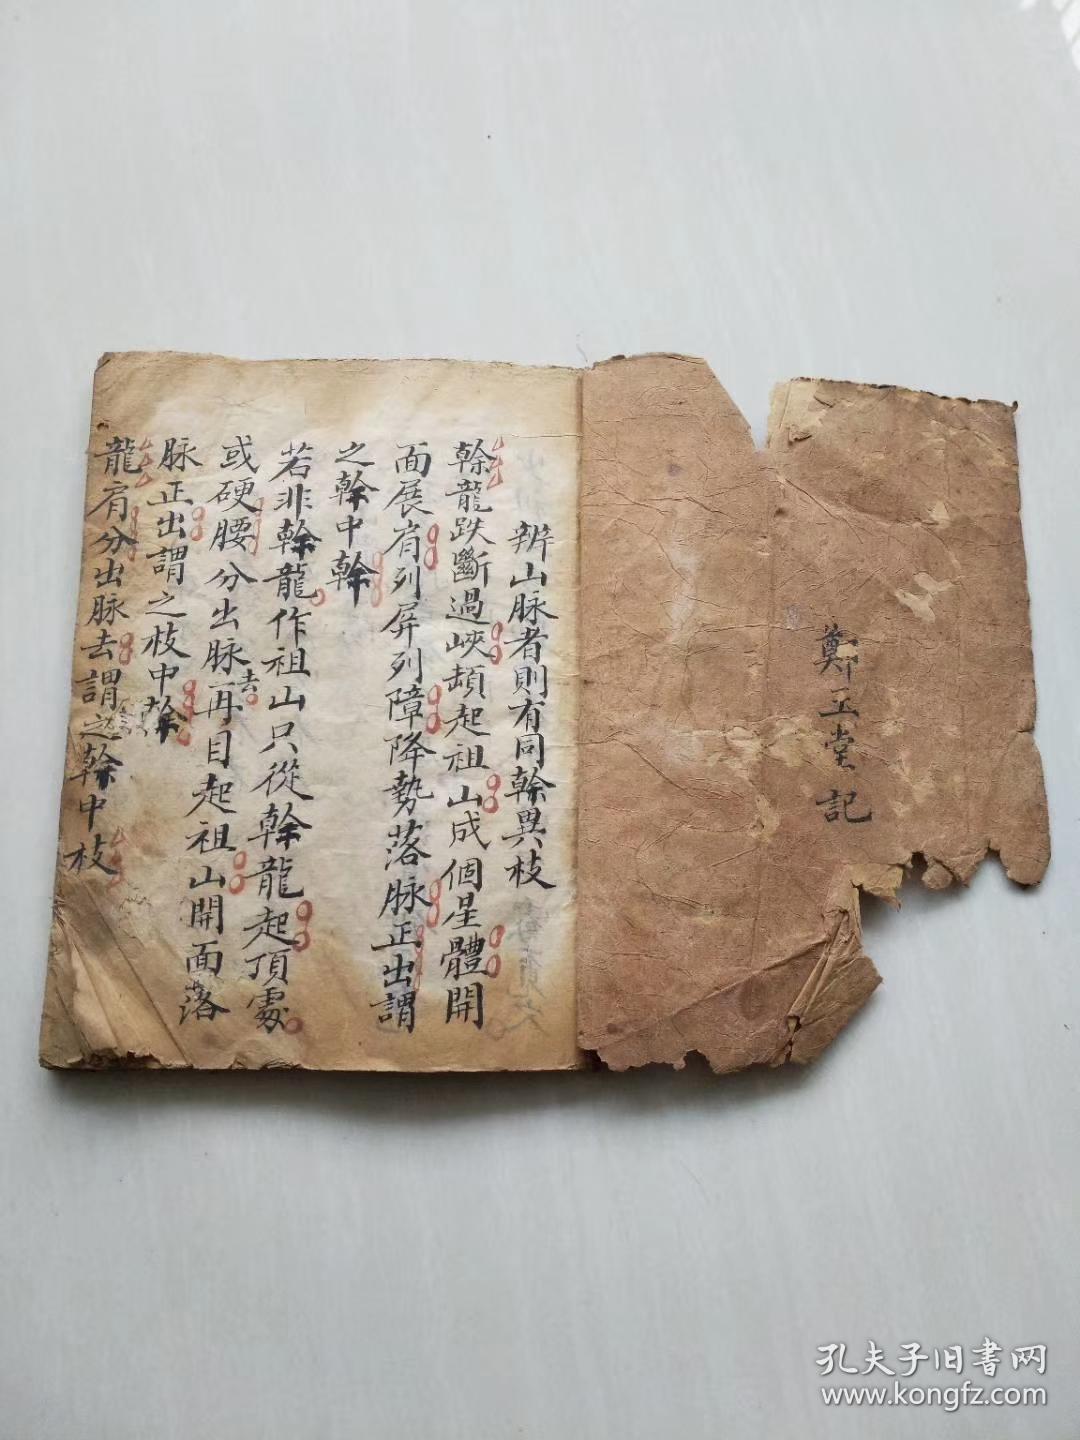 鄭玉堂記
辨山脉者則有同幹異枝
幹龍跌斷過峽頓起祖山成個星體開
面展肩列屏列障降勢落脉正出謂
之幹中幹
若非幹龍作祖山只從幹龍起頂處
或硬腰分出脉去再自起祖山開面落
脉正出謂之枝中幹
龍肩分出脉去謂之幹中枝
孔夫子旧書网
www.kongfz.com